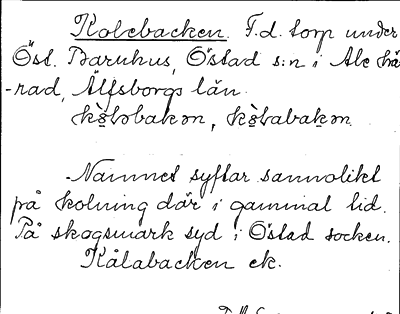 Kolebacken. F.d. torp under
Öst. Baruhus, Östad s:n i Ale hä-
-rad, Älfsborgs län.
Namnet syftar sannolikt
på kolning där i gammal tid.
På skogsmark syd i Östad socken.
Kålabacken ek.